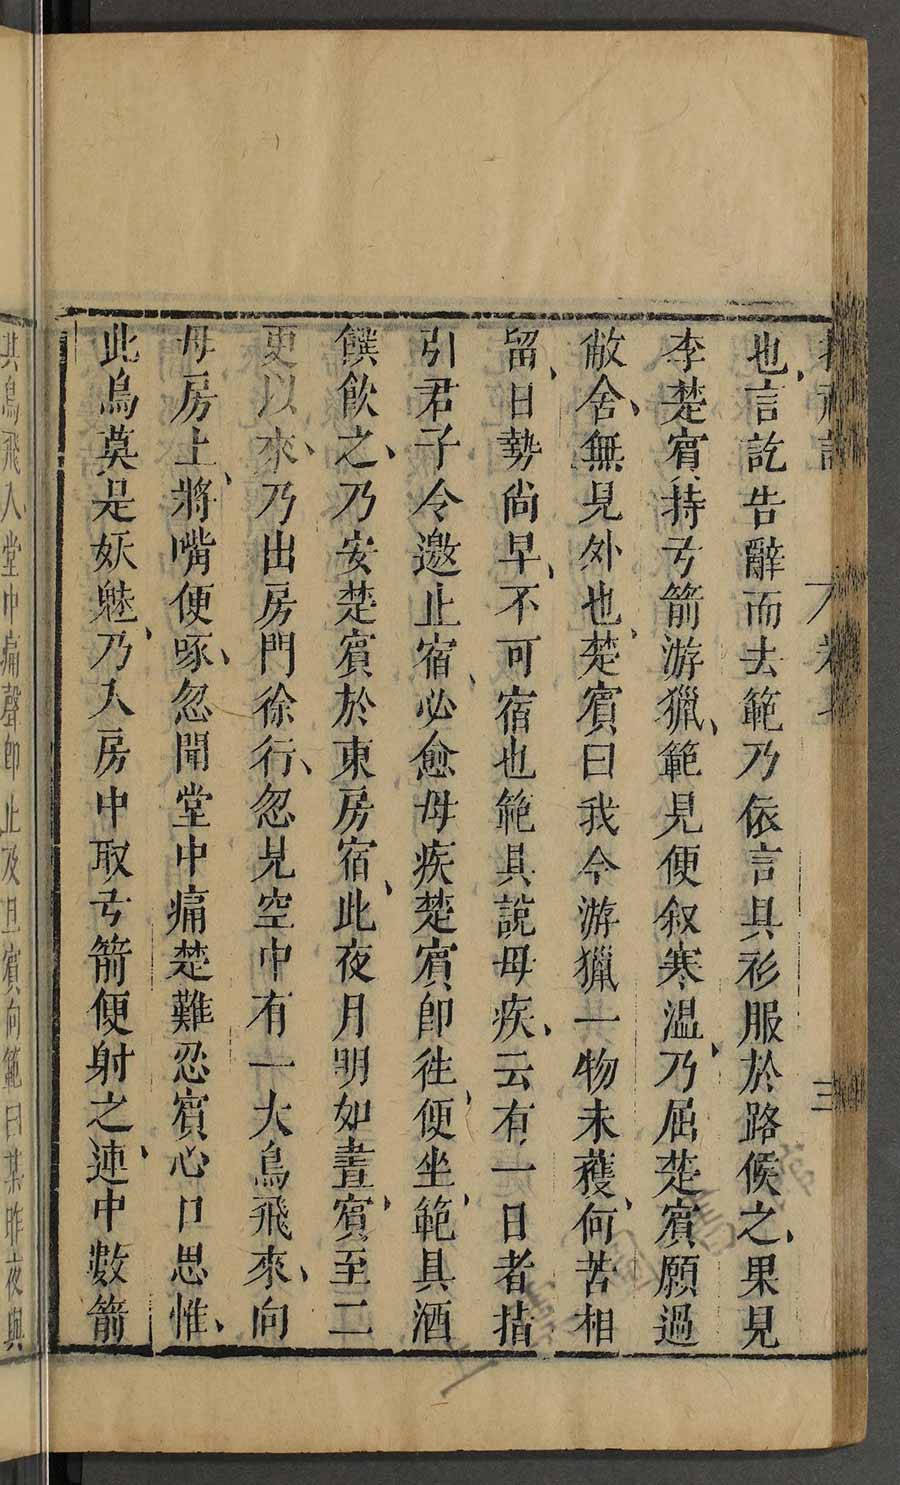 也言訖告辭而去範乃依言具衫服於路候之果見
李楚賓持弓箭游獵範見便叙寒温乃屈楚賓願過
敝舍無見外也楚賓曰我今游獵一物未蒦何苦相
留日勢尚早不可宿也範具說母疾云有一日者指
引君子令邀止宿必愈母疾楚賓即徃便坐範具酒
饌飲之乃安楚賓於東房宿此夜月明如晝賓至二
更以來乃出房門徐行忽見空中有一大鳥飛來向
母房上將嘴便啄忽聞堂中痛楚難忍賓心口思惟
此鳥莫是妖魅乃入房中取弓箭便射之連中數箭
其鳥飛入堂中痛聲即止及旦賓向範曰某昨夜與
卷
三